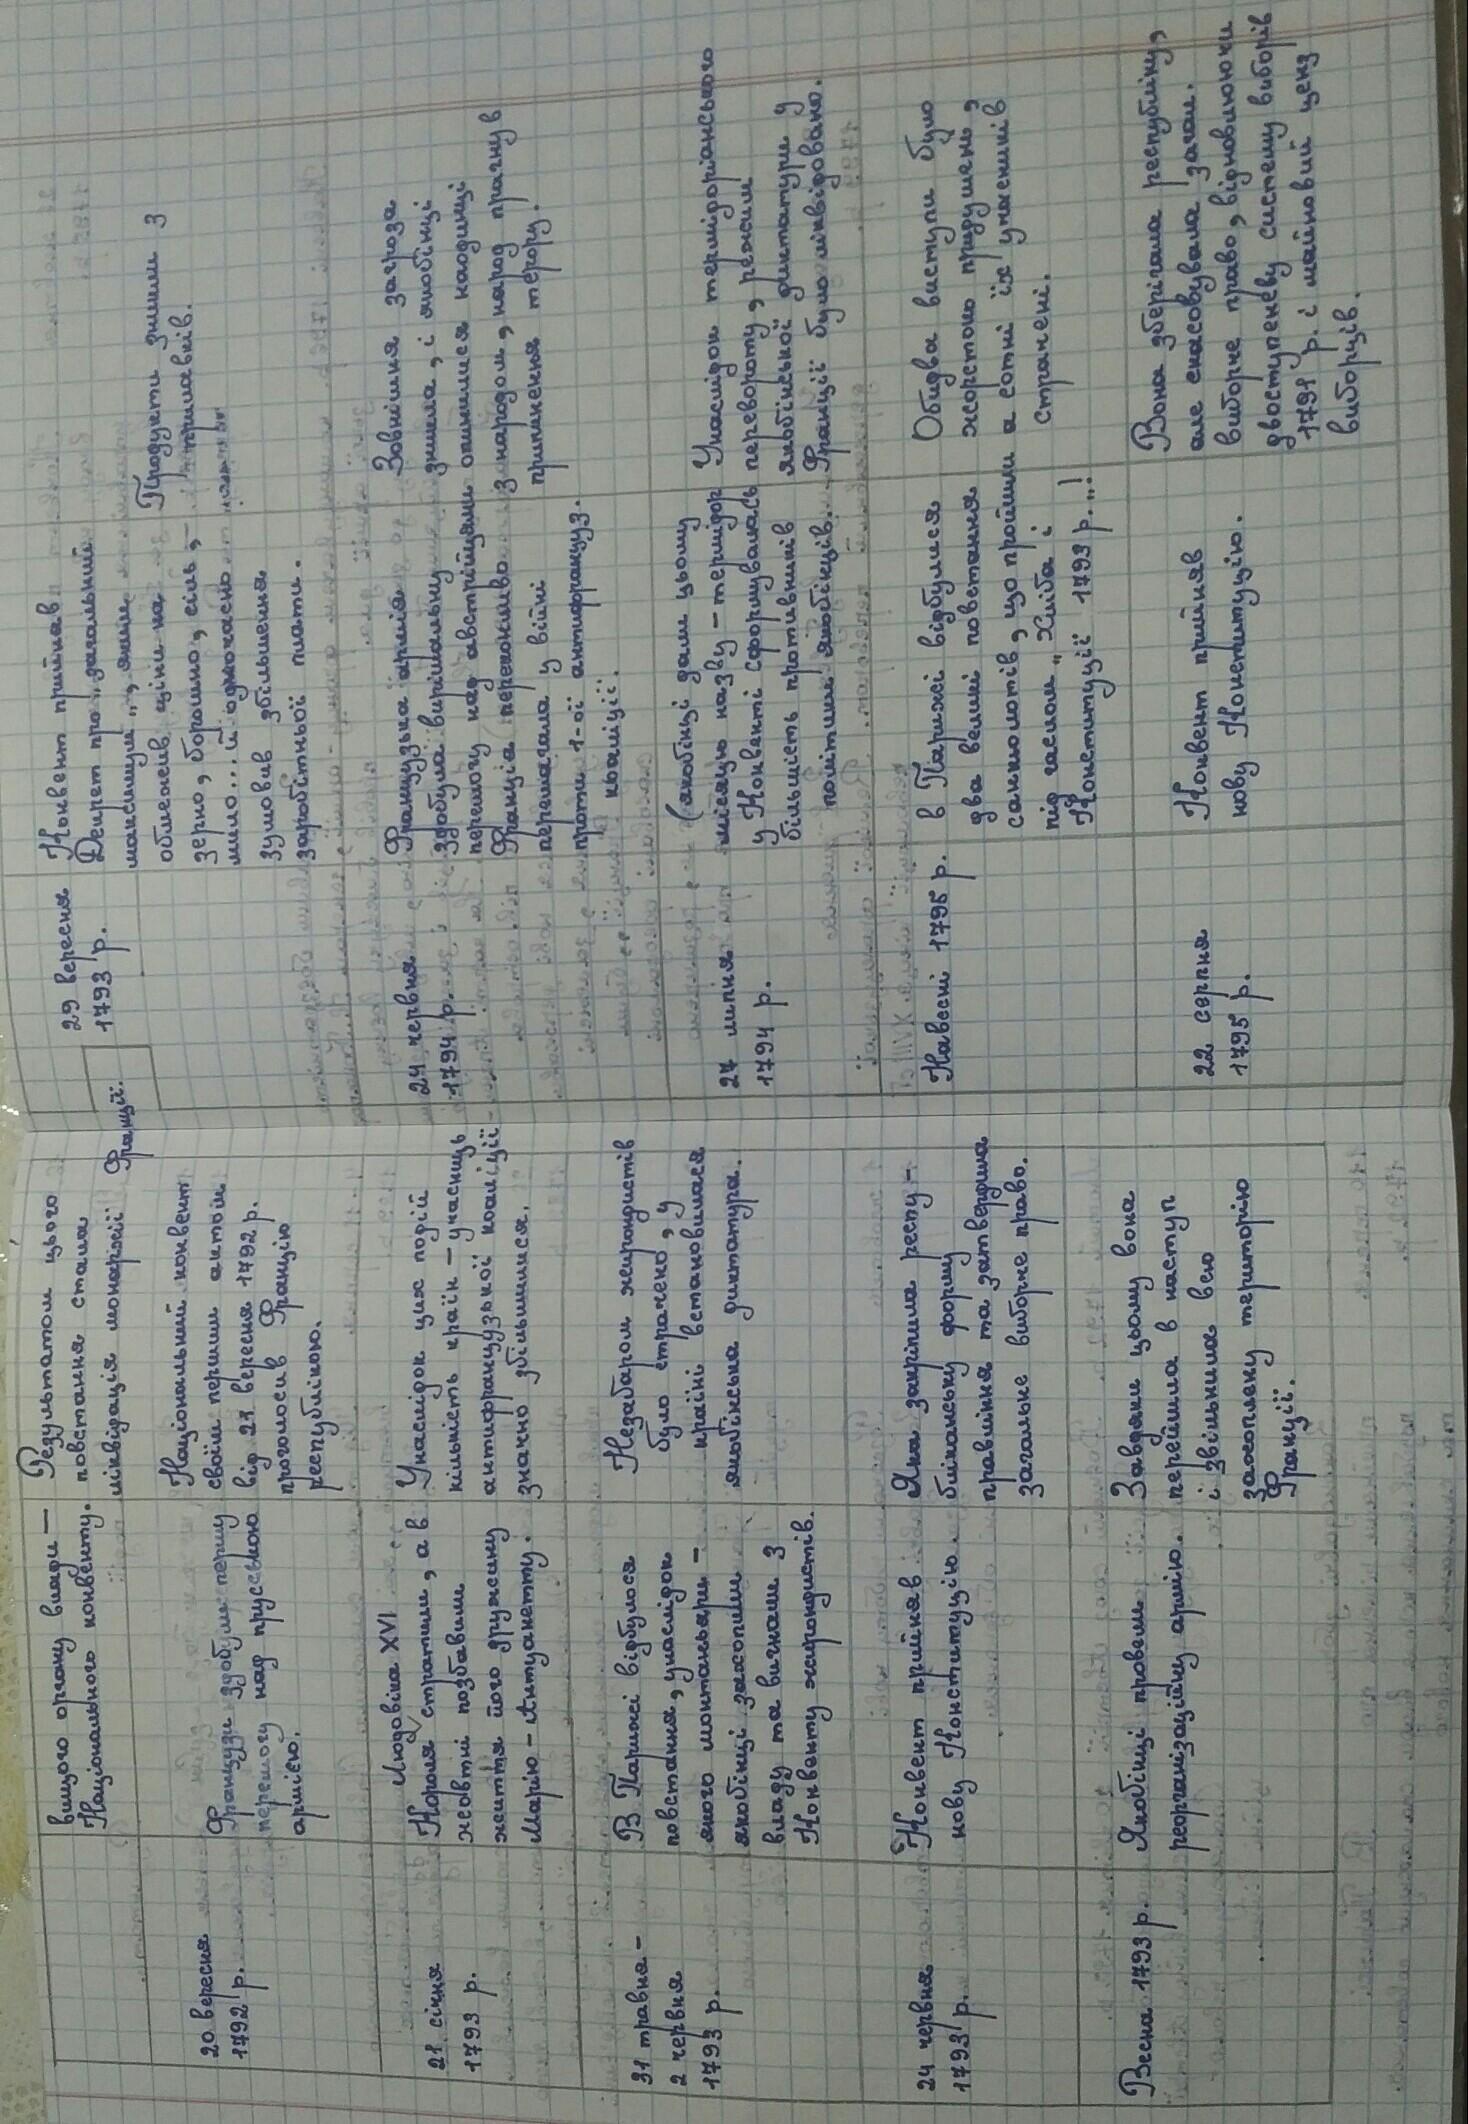 вищого органу влади –
Національного конвенту.
Результатом цього
повстання стала
ліквідація монархії Франції.
20 вересня
1792 р.
Французи здобули першу
перемогу над прусською
армією.
Національний конвент
своїм першим актом
від 21 вересня 1792 р.
проголосив Францію
республікою.
21 січня
1793 р.
Людовіка XVI
Короля стратили, а в
жовтні позбавили
життя його дружину
Марію-Антуанетту.
Унаслідок цих подій
кількість країн-учасниць
антифранцузької коаліції
значно збільшилися.
31 травня –
2 червня
1793 р.
В Парижі відбулося
повстання, унаслідок
якого монтаньяри –
якобінці захопили
владу та вигнали з
Конвенту жирондистів.
Незабаром жирондистів
було страчено, у
країні встановилася
якобінська диктатура.
24 червня
1793 р.
Конвент прийняв
нову Конституцію.
Яка закріпила респу-
бліканську форму
правління та затвердила
загальне виборче право.
Весна 1793 р.
Якобінці провели
реорганізаційну армію.
Завдяки цьому вона
перейшла в наступ
і звільнила всю
захоплену територію
Франції.
29 вересня
1793 р.
Конвент прийняв
Декрет про „загальний
максимум", яким
обмежив ціни на
зерно, борошно, сіль,
мило... й одночасно
зумовив збільшення
заробітньої плати.
Продукти зникли з
прилавків.
24 червня
1794 р.
Французька армія
здобула вирішальну
перемогу над австрійцями
Франція переконливо
перемагала у війні
проти 1-ої антифранцуз.
коаліції.
Зовнішня загроза
зникла, і якобінці
опинилися наодинці
з народом, народ прагнув
припинення терору.
27 липня
1794 р.
(якобінці дали цьому
місяцю назву – термідор
у Конвенті сформувалась
більшість противників
політики якобінців.
Унаслідок термідоріанського
перевороту, режим
якобінської диктатури у
Франції було ліквідовано.
Навесні 1795 р.
в Парижі відбулися
два великі повстання
санкюлотів, що пройшли
під гаслом „Хліба і
Конституції 1793 р...!
Обидва виступи було
жорстоко придушень,
а сотні їх учасників
страчені.
22 серпня
1795 р.
Конвент прийняв
нову Конституцію.
Вона зберігала республіку,
але скасовувала загал.
виборче право, відновлюючи
двоступеневу систему виборів
1791 р. і майновий ценз
виборців.